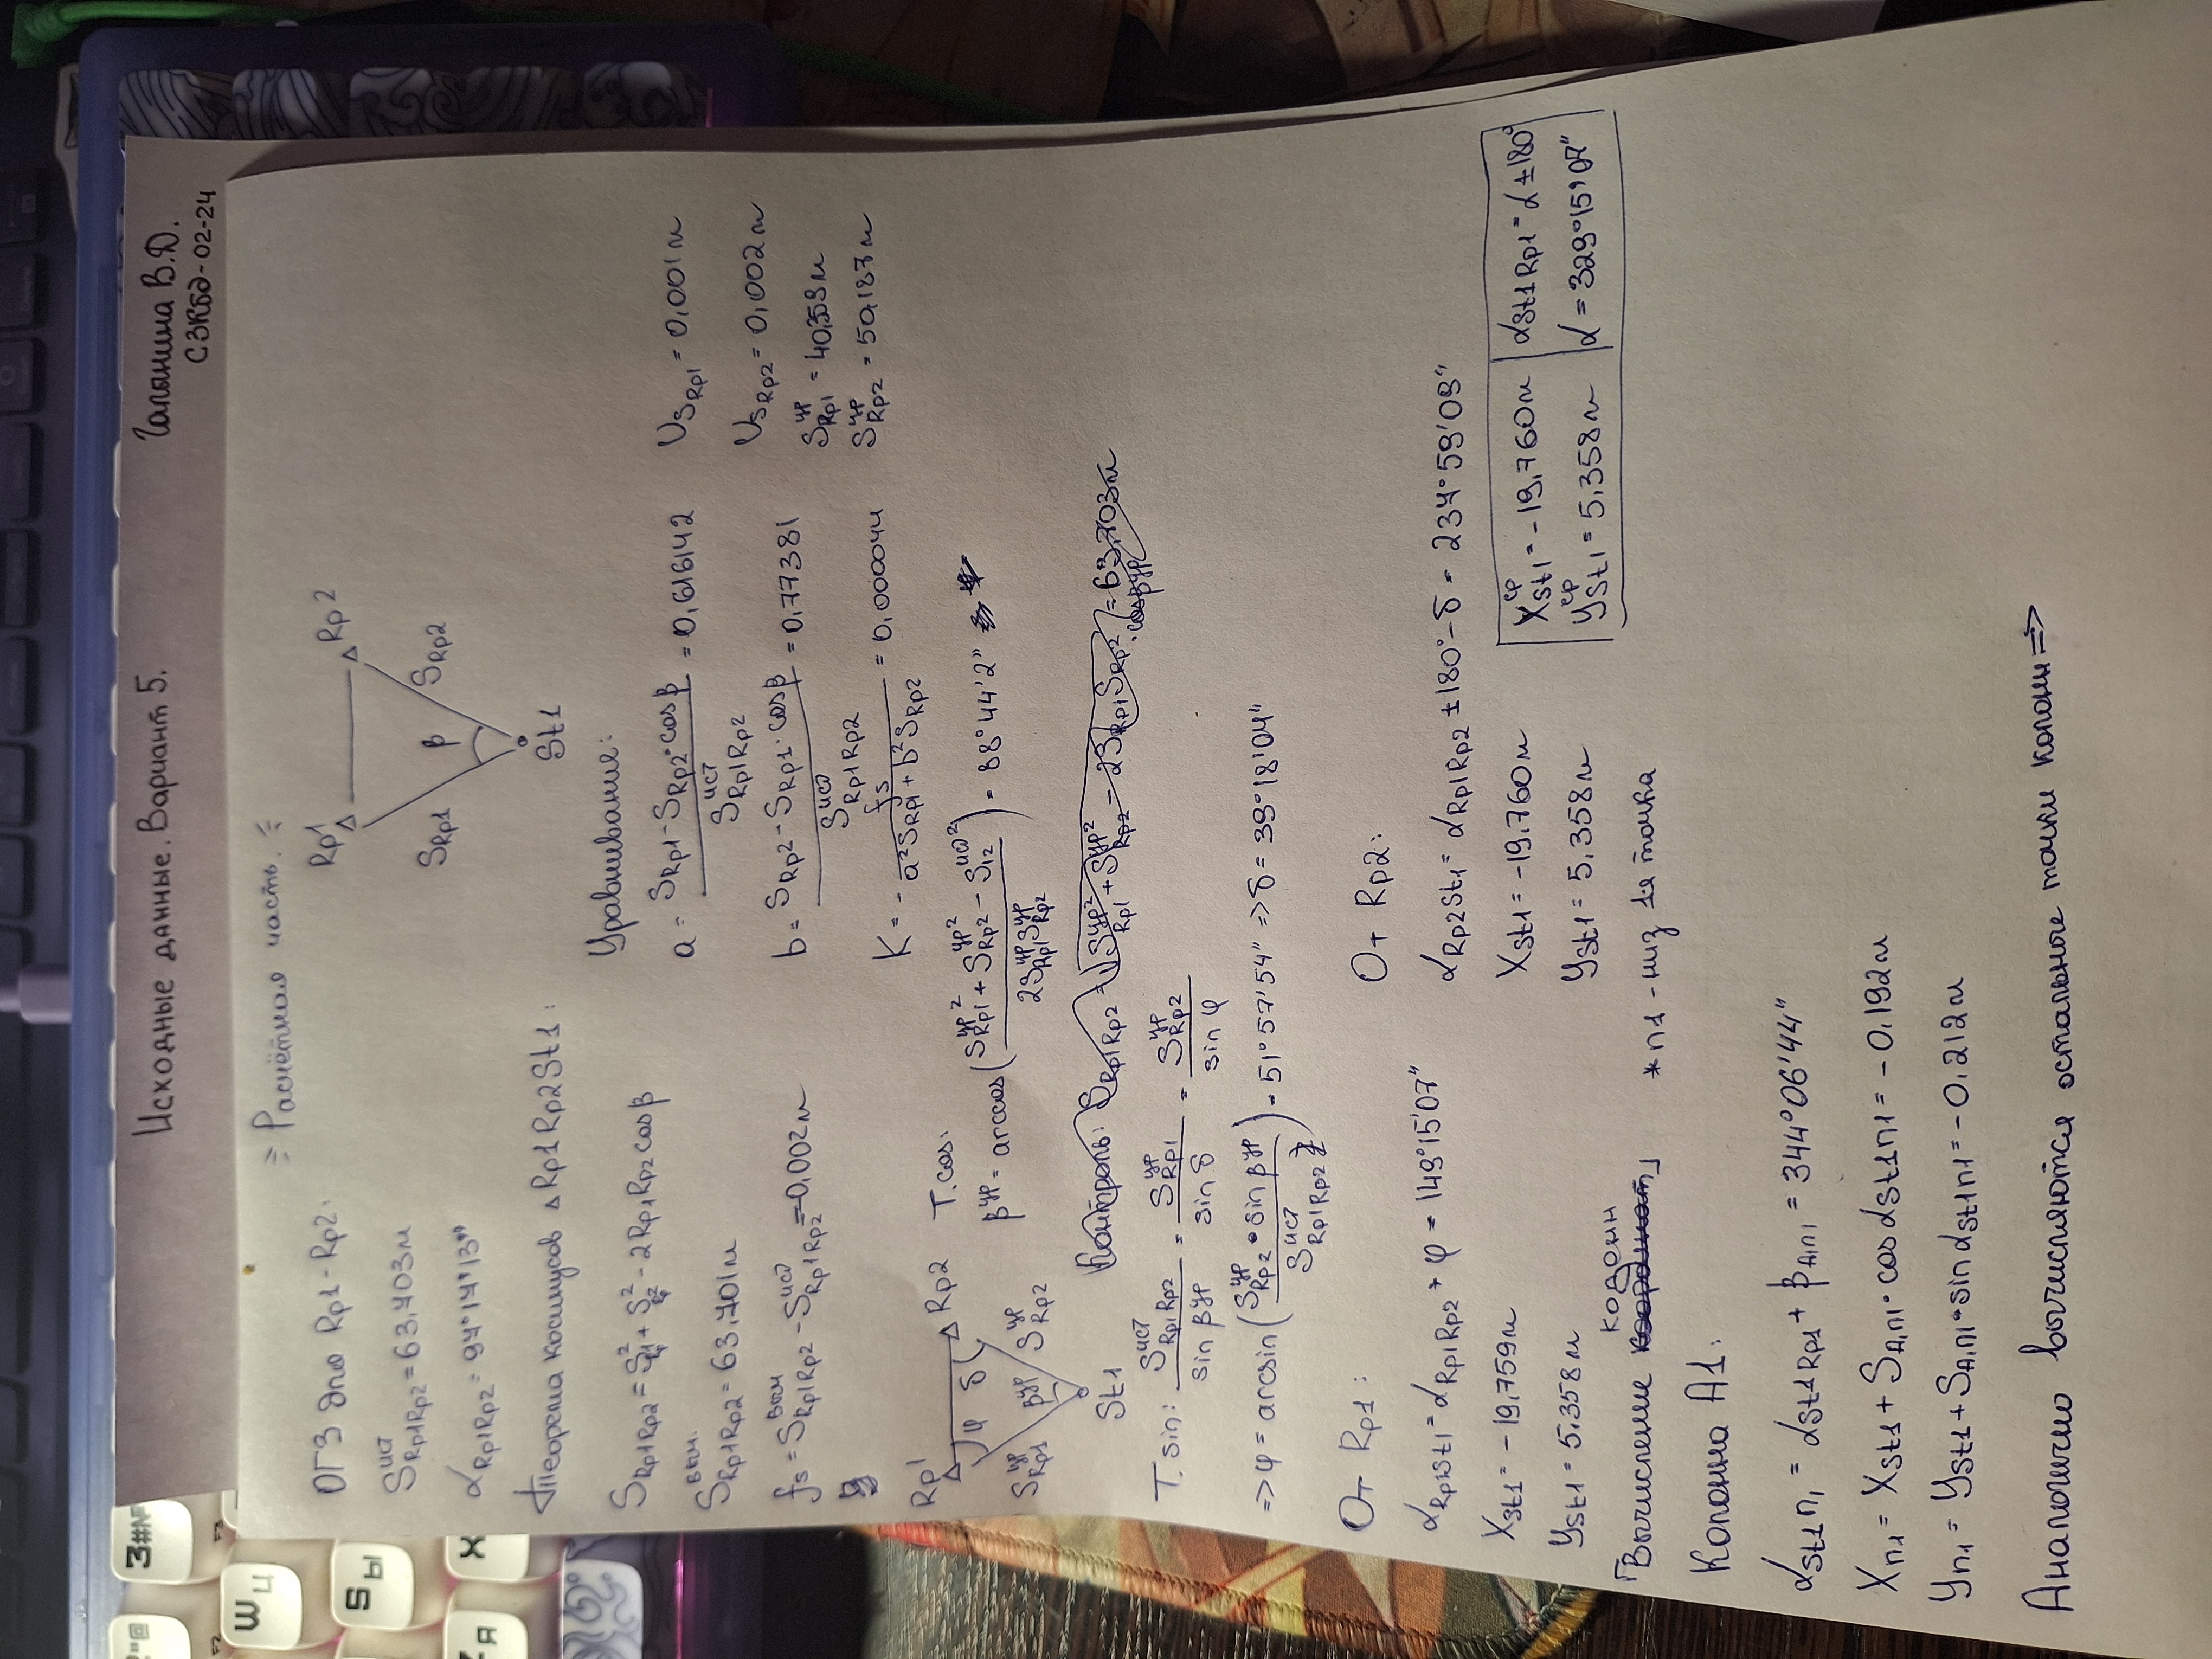 Исходные данные. Вариант 5.
Галанина В.Д.
СЗКбд-02-24
= Расчётная часть. =
ОГЗ для Rp1-Rp2:
S^ист_Rp1Rp2 = 63,703м
α_Rp1Rp2 = 97°17'13"
Rp1
Rp2
S_Rp1
β
S_Rp2
St1
Теорема косинусов △Rp1Rp2St1:
S_Rp1Rp2 = S²_1 + S²_2 - 2Rp1Rp2cosβ
S^выч._Rp1Rp2 = 63,701м
f_s = S^выч_Rp1Rp2 - S^исд_Rp1Rp2 = -0,002м
Уравнивание:
a = (S_Rp1 - S_Rp2·cosβ) / S^ист_Rp1Rp2 = 0,616142
b = (S_Rp2 - S_Rp1·cosβ) / S^исд_Rp1Rp2 = 0,77381
K = - f_s / (a²S_Rp1 + b²S_Rp2) = 0,000044
U_SRp1 = 0,001м
U_SRp2 = 0,002м
S^ур_Rp1 = 40,359м
S^ур_Rp2 = 50,187м
Rp1
Rp2
φ
δ
S^ур_Rp1
β^ур
S^ур_Rp2
St1
Т. cos:
β^ур = arccos((S^ур²_Rp1 + S^ур²_Rp2 - S^исд²_12) / 2S^ур_Rp1S^ур_Rp2) = 88°44'2"
Контроль: S_Rp1Rp2 = √S^ур²_Rp1 + S^ур²_Rp2 - 2S_Rp1S_Rp2·cosβ^ур = 63,703м
Т. sin: S^ист_Rp1Rp2 / sinβ^ур = S^ур_Rp1 / sinδ = S^ур_Rp2 / sinφ
=> φ = arcsin(S^ур_Rp2·sinβ^ур / S^ист_Rp1Rp2) = 51°57'54" => δ = 39°18'04"
От Rp1:
α_Rp1St1 = α_Rp1Rp2 + φ = 149°15'07"
X_St1 = -19,759м
Y_St1 = 5,358м
От Rp2:
α_Rp2St1 = α_Rp1Rp2 ±180° - δ = 234°59'09"
X_St1 = -19,760м
Y_St1 = 5,358м
X^ср_St1 = -19,760м
Y^ср_St1 = 5,358м
α_St1Rp1 = α ±180°
α = 329°15'07"
"Вычисление колонн"
*n1 - низ 1я точка
Колонна А1:
α_St1n1 = α_St1Rp1 + β_A1n1 = 344°06'44"
X_n1 = X_St1 + S_A1n1·cosα_St1n1 = -0,192м
Y_n1 = Y_St1 + S_A1n1·sinα_St1n1 = -0,212м
Аналогично вычисляются остальные точки колонн =>